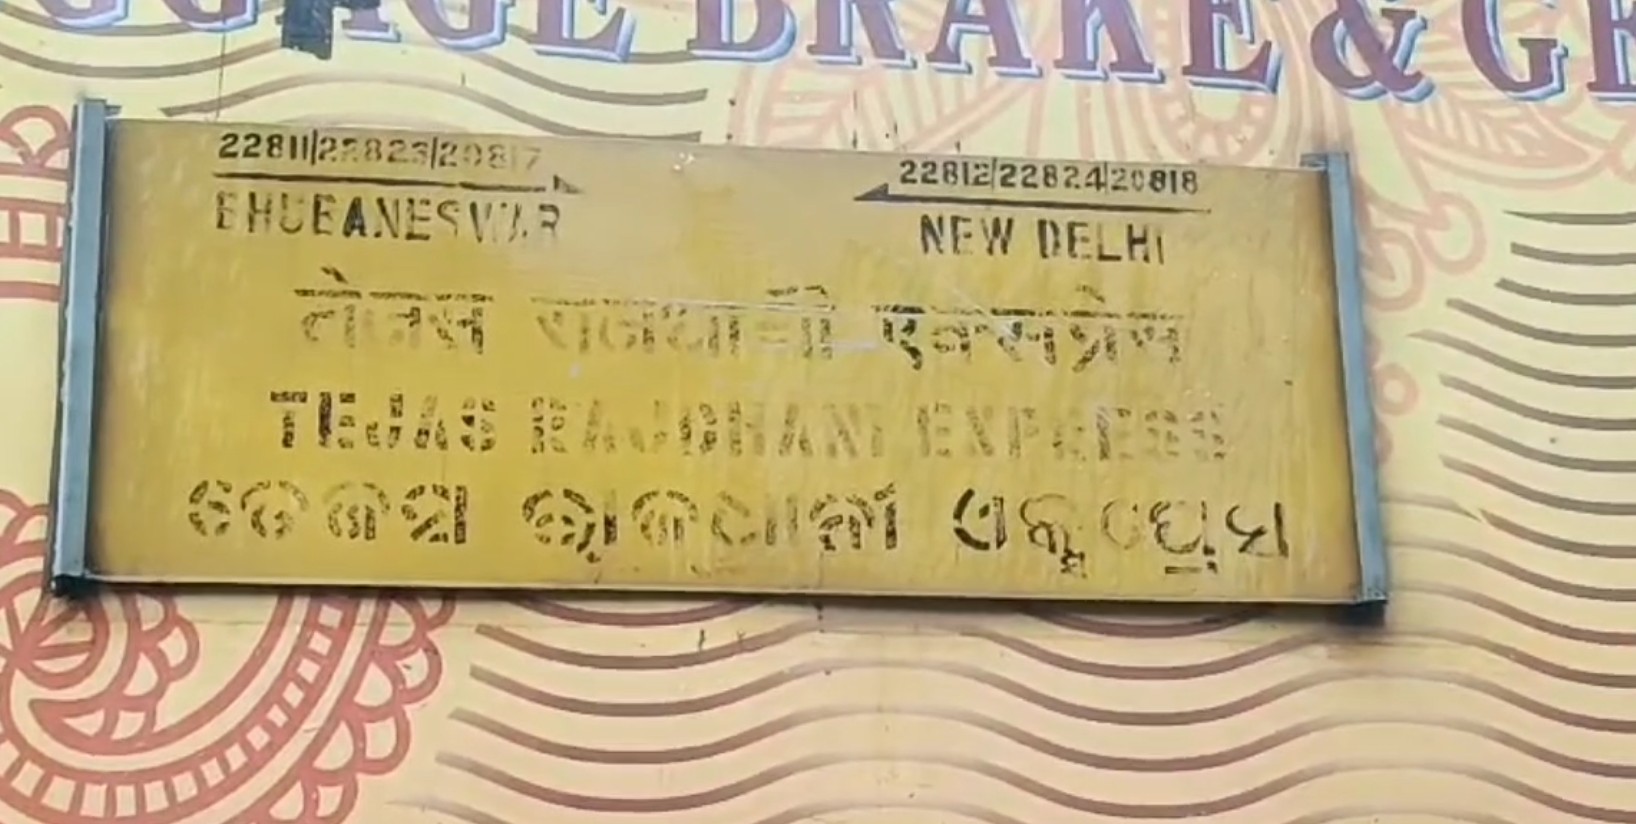 GGAGE BRAKE & GE
22811|22823|20817
22812|22824|20818
BHUBANESWAR
NEW DELHI
तेजस राजधानी एक्सप्रेस
TEJAS RAJDHANI EXPRESS
ତେଜସ ରାଜଧାନୀ ଏକ୍ସପ୍ରେସ